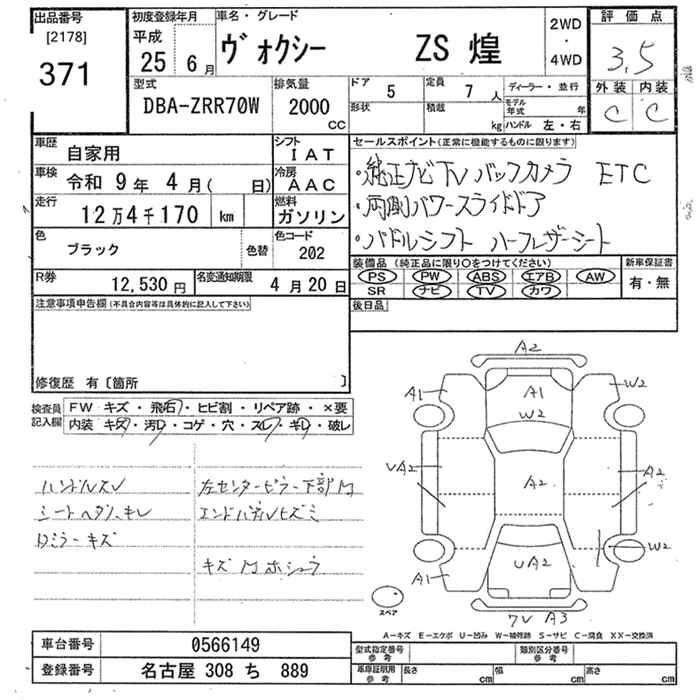 出品番号
[2178]
371
初度登録年月
平成
25年 6月
車名・グレード
ヴォクシー ZS 煌
2WD
・
4WD
評価点
3.5
外装 内装
C C
型式
DBA-ZRR70W
排気量
2000
CC
ドア 5
定員 7人
形状
積載 kg
ディーラー・並行
モデル年式 年
ハンドル 左・右
車歴 自家用
シフト IAT
車検 令和 9年 4月( 日)
冷房 AAC
走行 12万4千170 km
燃料 ガソリン
色 ブラック
色替
色コード 202
R券 12,530円
名変通知期限 4月20日
セールスポイント(正常に機能するものに限ります)
・純正ナビTV バックカメラ ETC
・両側パワースライドドア
・パドルシフト ハーフレザーシート
装備品(純正品に限り○をつけてください)
PS PW ABS エアB AW
SR ナビ TV カワ
新車保証書
有・無
後日品
注意事項申告欄(不具合内容等は具体的に記入して下さい)
修復歴 有〔箇所 〕
検査員記入欄
FW キズ・飛石・ヒビ割・リペア跡・×要
内装 キズ・汚レ・コゲ・穴・スレ・キレ・破レ
ハンドルスレ
シートヘタリ、キレ
Rミラーキズ
左センターピラー下部M
エンドパネルヒズミ
キズMホシュウ
A2
A1
A1
W2
W2
UA2
A2
A2
W2
UA2
A1
7V A3
スペア
A-キズ E-エクボ U-凹み W-補修跡 S-サビ C-腐食 XX-交換済
車台番号 0566149
登録番号 名古屋 308 ち 889
型式指定番号 参考
類別区分番号 参考
車庫証明用 参考
長さ cm
幅 cm
高さ cm